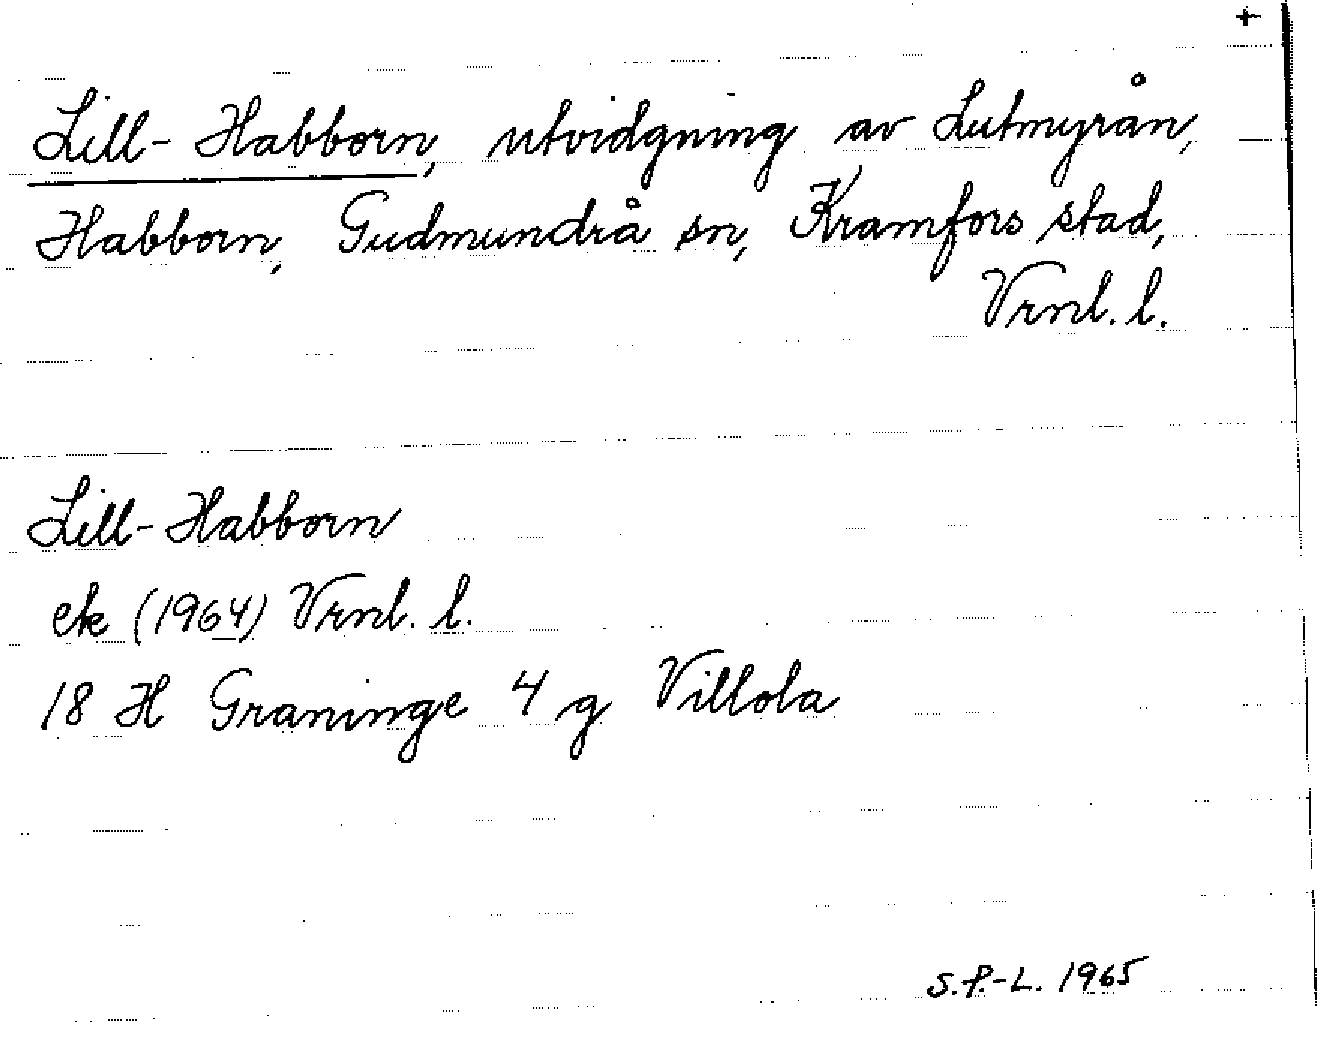 +
Lill-Habborn, utvidgning av Lutmyrån,
Habborn, Gudmundrå sn, Kramfors stad,
Vrnl. l.
Lill-Habborn
ek (1964) Vrnl. l.
18 H Graninge 4 g Villola
S.P.-L. 1965